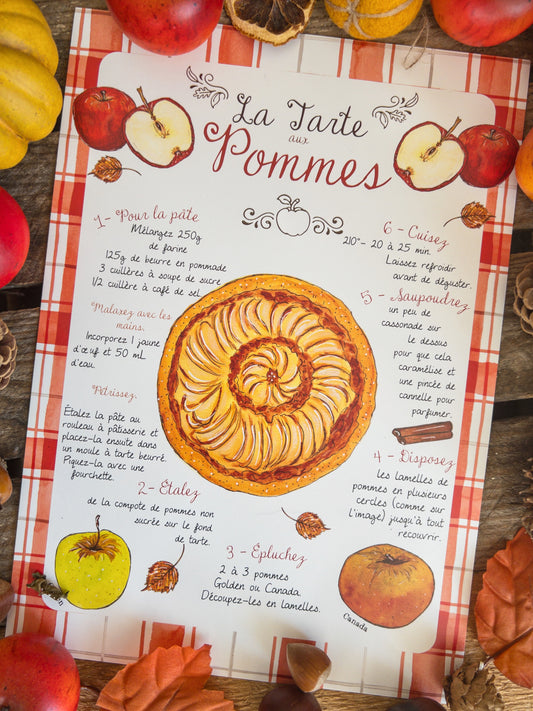 La Tarte
aux
Pommes
1- Pour la pâte
Mélangez 250g
de farine
125g de beurre en pommade
3 cuillères à soupe de sucre
1/2 cuillère à café de sel
Malaxez avec les
mains.
Incorporez 1 jaune
d'œuf et 50 mL
d'eau.
Pétrissez.
Étalez la pâte au
rouleau à pâtisserie et
placez-la ensuite dans
un moule à tarte beurré.
Piquez-la avec une
fourchette.
2- Étalez
de la compote de pommes non
sucrée sur le fond
de tarte.
3 - Épluchez
2 à 3 pommes
Golden ou Canada.
Découpez-les en lamelles.
4 - Disposez
les lamelles de
pommes en plusieurs
cercles (comme sur
l'image) jusqu'à tout
recouvrir.
5 - Saupoudrez
un peu de
cassonade sur
le dessus
pour que cela
caramélise et
une pincée de
cannelle pour
parfumer.
6 - Cuisez
210°- 20 à 25 min.
Laissez refroidir
avant de déguster.
Canada